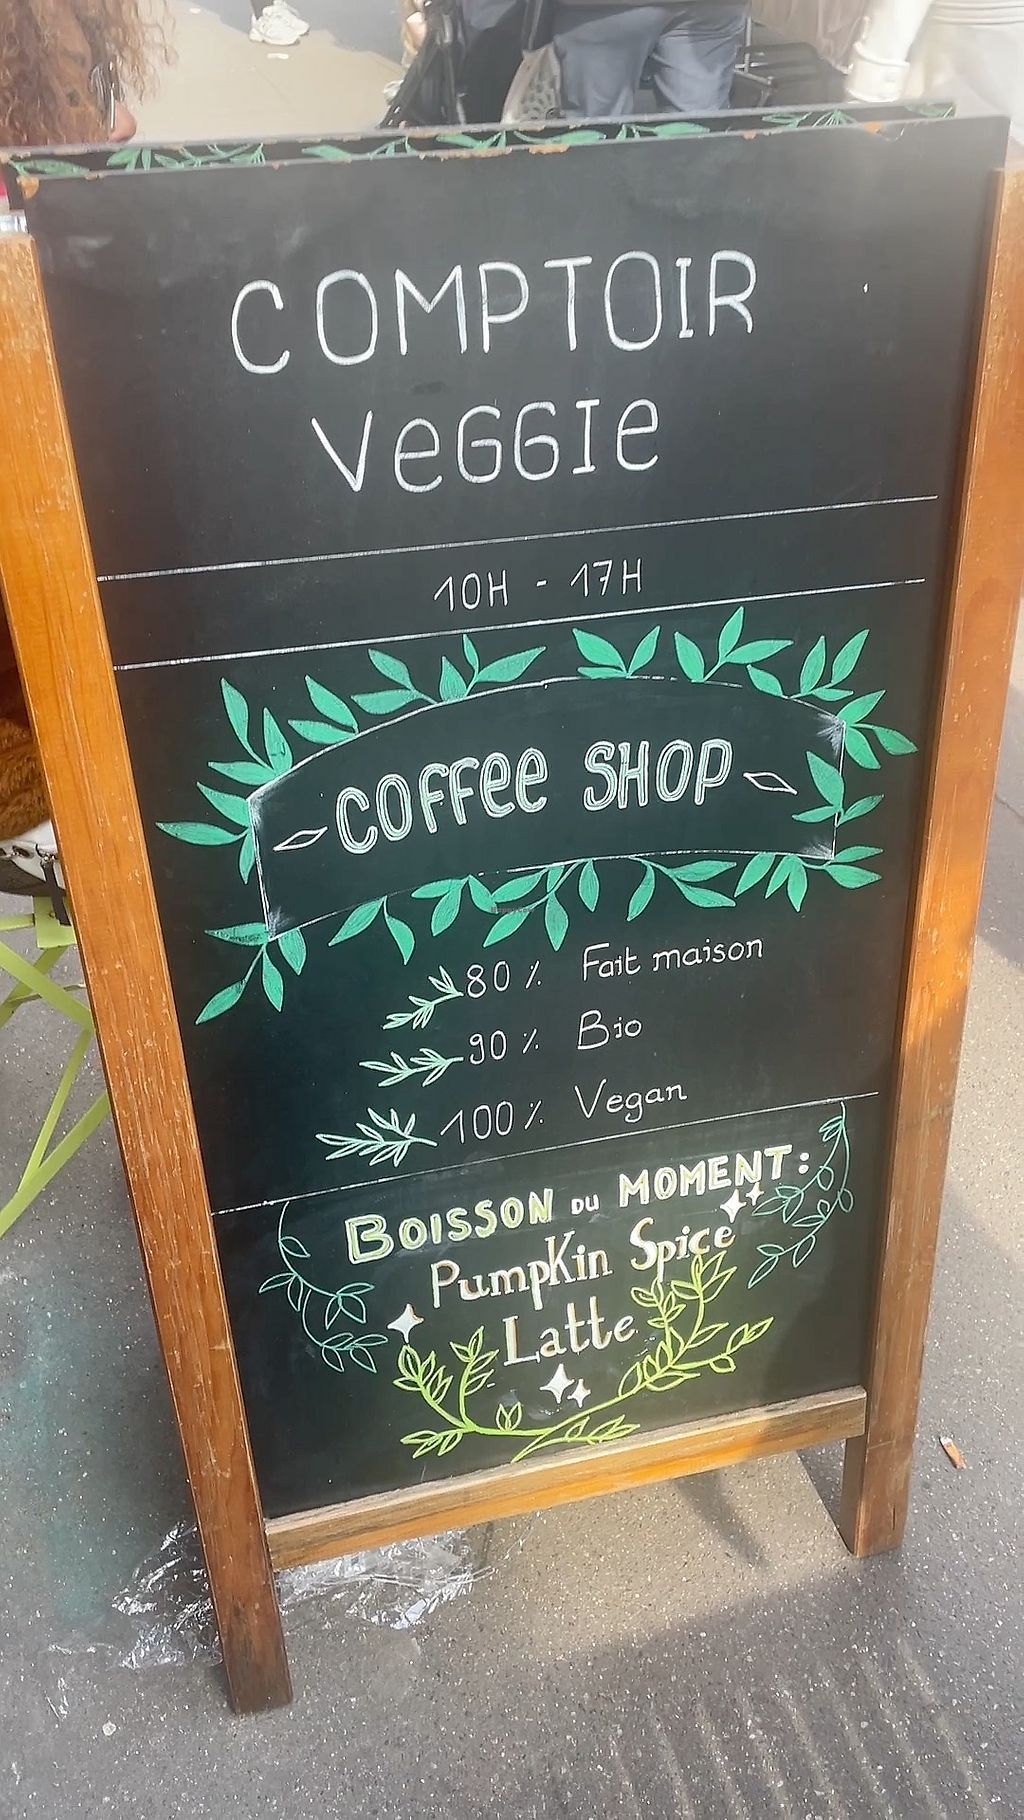 COMPTOIR
VeGGIe
10H - 17H
COFFee SHOP
80 % Fait maison
90 % Bio
100 % Vegan
BOISSON DU MOMENT:
PumpKin Spice
Latte